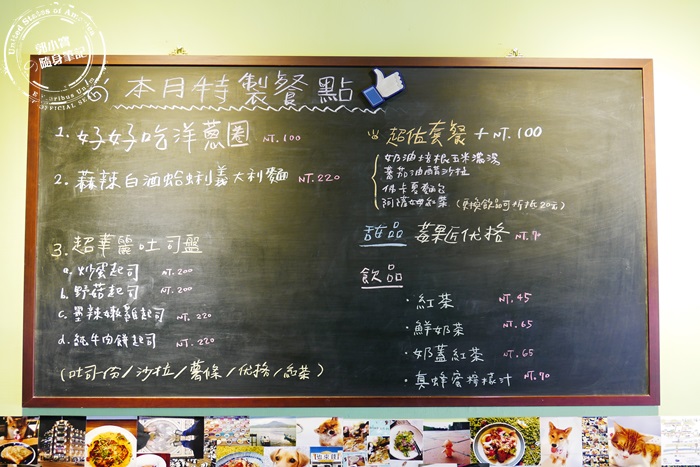 鄧小寶
隨身筆記
本月特製餐點
1. 好好吃洋蔥圈 NT.100
2. 蒜辣白酒蛤蜊義大利麵 NT.220
3. 超華麗吐司盤
a. 炒蛋起司 NT.200
b. 野菇起司 NT.200
c. 墨辣嫩雞起司 NT.220
d. 純牛肉餅起司 NT.220
(吐司一份/沙拉/薯條/优格/紅茶)
超值套餐 + NT.100
奶油培根玉米濃湯
蕃茄油醋沙拉
佛卡夏麵包
阿薩姆紅茶 (更換飲品可折抵20元)
甜品 莓果匠优格 NT.70
飲品
·紅茶 NT.45
·鮮奶茶 NT.65
·奶蓋紅茶 NT.65
·真蜂蜜檸檬汁 NT.70